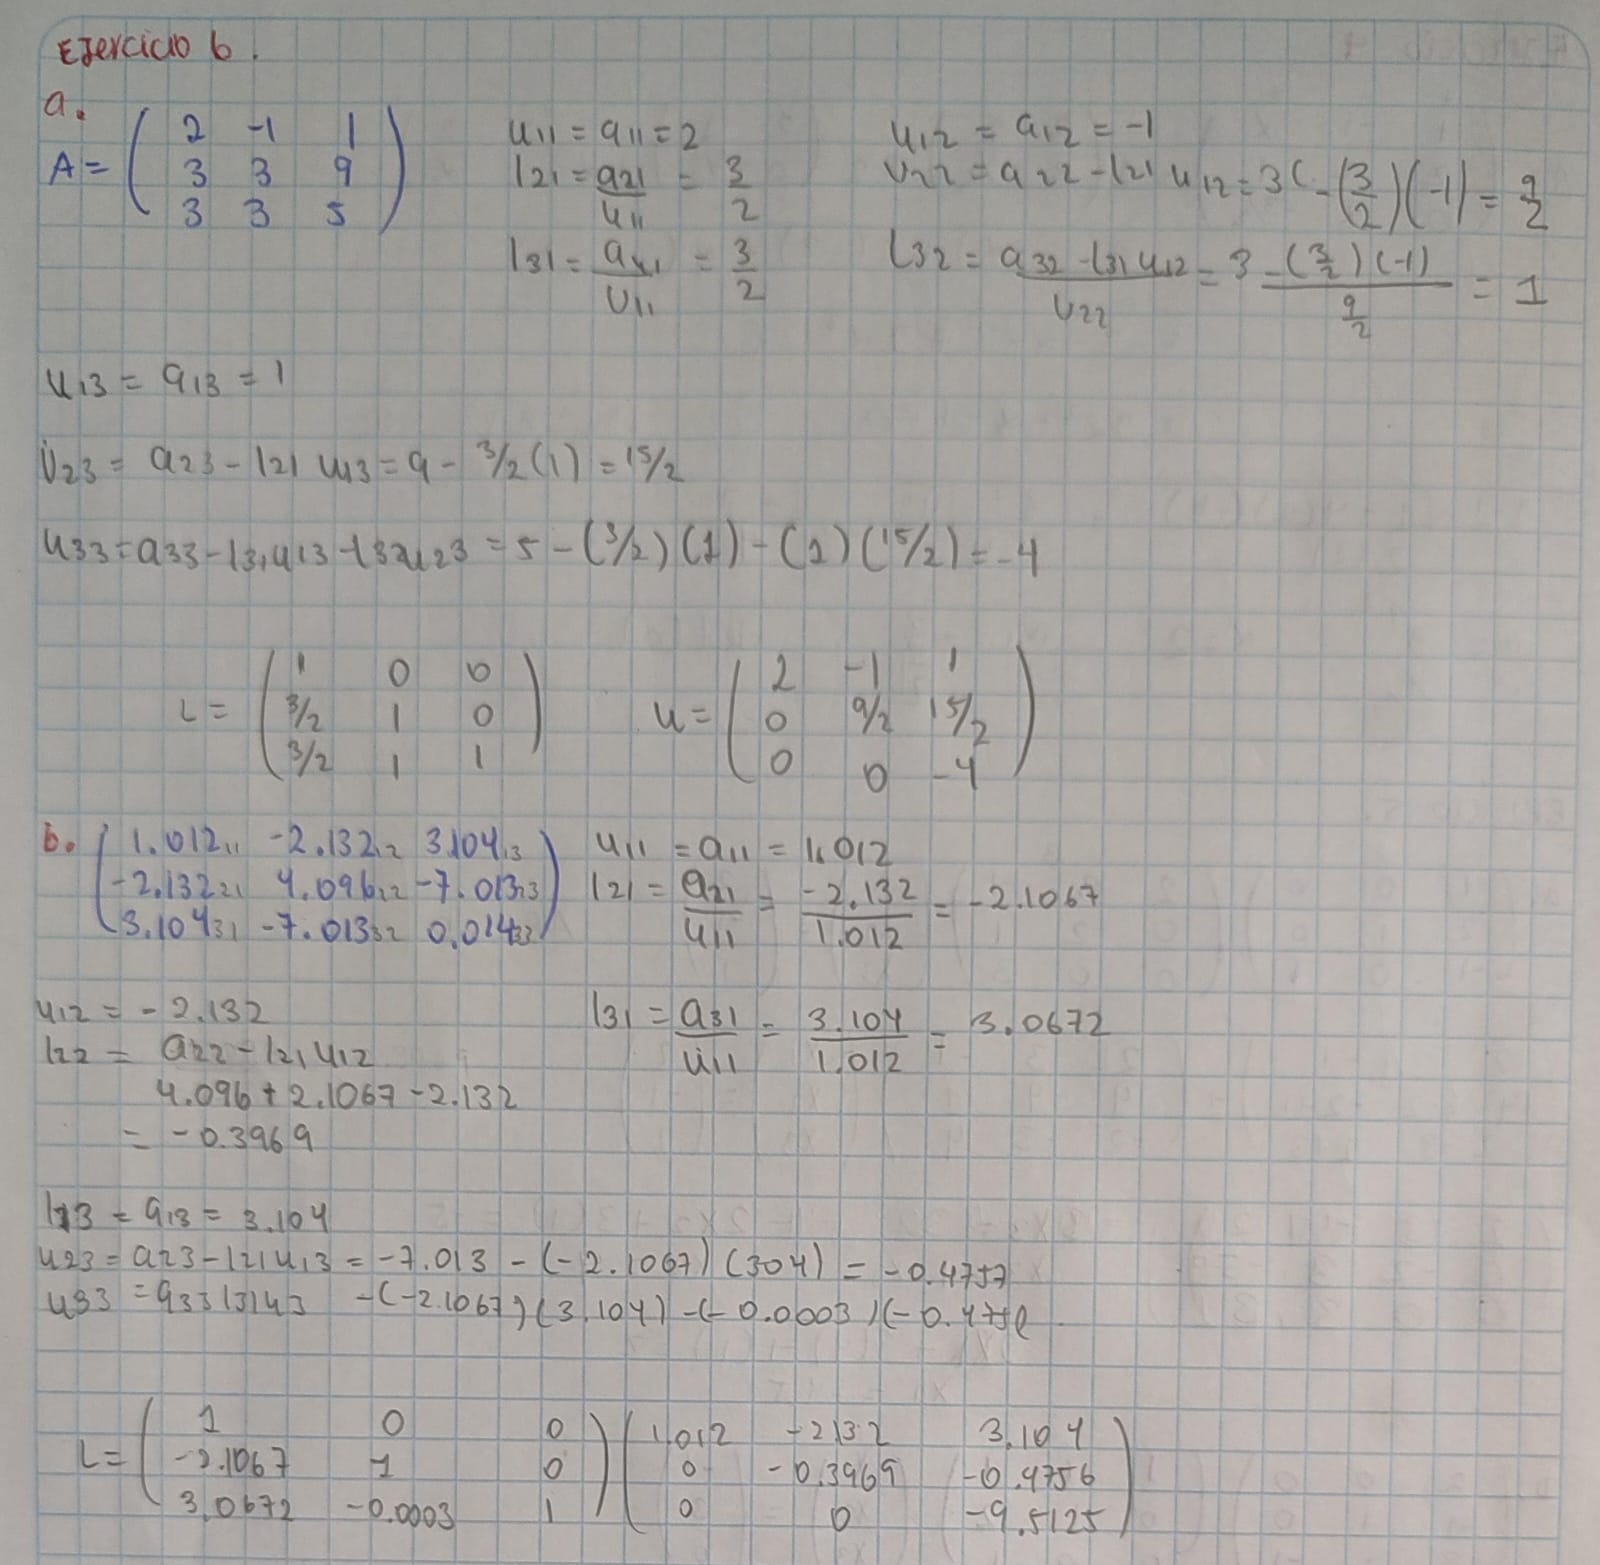 Ejercicio 6.
a.
A = ( 2 -1 1
3 3 9
3 3 5 )
u11 = a11 = 2
l21 = a21/u11 = 3/2
l31 = a31/U11 = 3/2
u12 = a12 = -1
U22 = a22 - l21 u12 = 3(-(3/2)(-1) = 9/2
l32 = a32 - l31 u12 / U22 = 3 -(3/2)(-1) / 9/2 = 1
u13 = a13 = 1
U23 = a23 - l21 u13 = 9 - 3/2 (1) = 15/2
u33 = a33 - l31u13 - l32u23 = 5 - (3/2)(1) - (1)(15/2) = -4
L = ( 1 0 0
3/2 1 0
3/2 1 1 )
u = ( 2 -1 1
0 9/2 15/2
0 0 -4 )
b. ( 1.012 11 -2.132 12 3.104 13
-2.132 21 4.096 22 -7.013 23
3.104 31 -7.013 32 0.014 33 )
u11 = a11 = 1.012
l21 = a21/u11 = -2.132/1.012 = -2.1067
u12 = -2.132
l31 = a31/u11 = 3.104/1.012 = 3.0672
l22 = a22 - l21 u12
4.096 + 2.1067 - 2.132
= -0.3969
l13 = a13 = 3.104
u23 = a23 - l21 u13 = -7.013 - (-2.1067)(304) = -0.4757
u33 = a33 l31 u3 -(-2.1067)(3.104) -(-0.0003)(-0.475
L = ( 1 0 0
-2.1067 1 0
3.0672 -0.0003 1 )
( 1.012 -2132 3.104
0 -0.3969 -0.4756
0 0 -9.5125 )